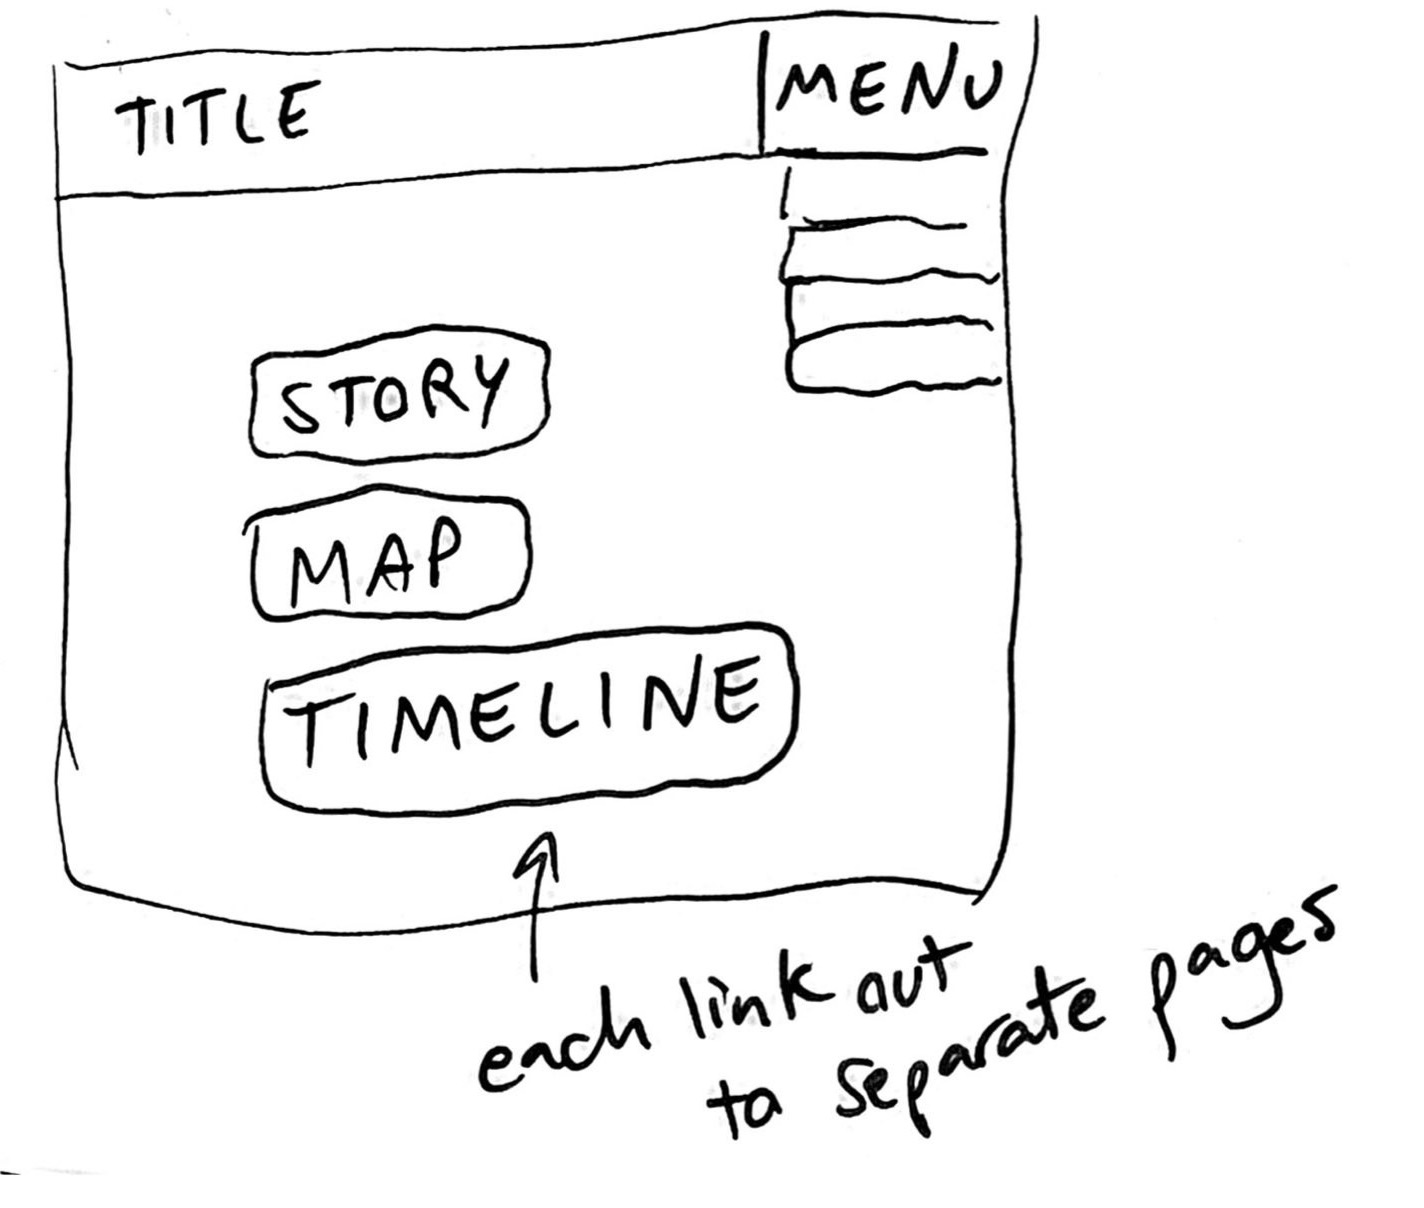 TITLE
MENU
STORY
MAP
TIMELINE
each link out
to separate pages